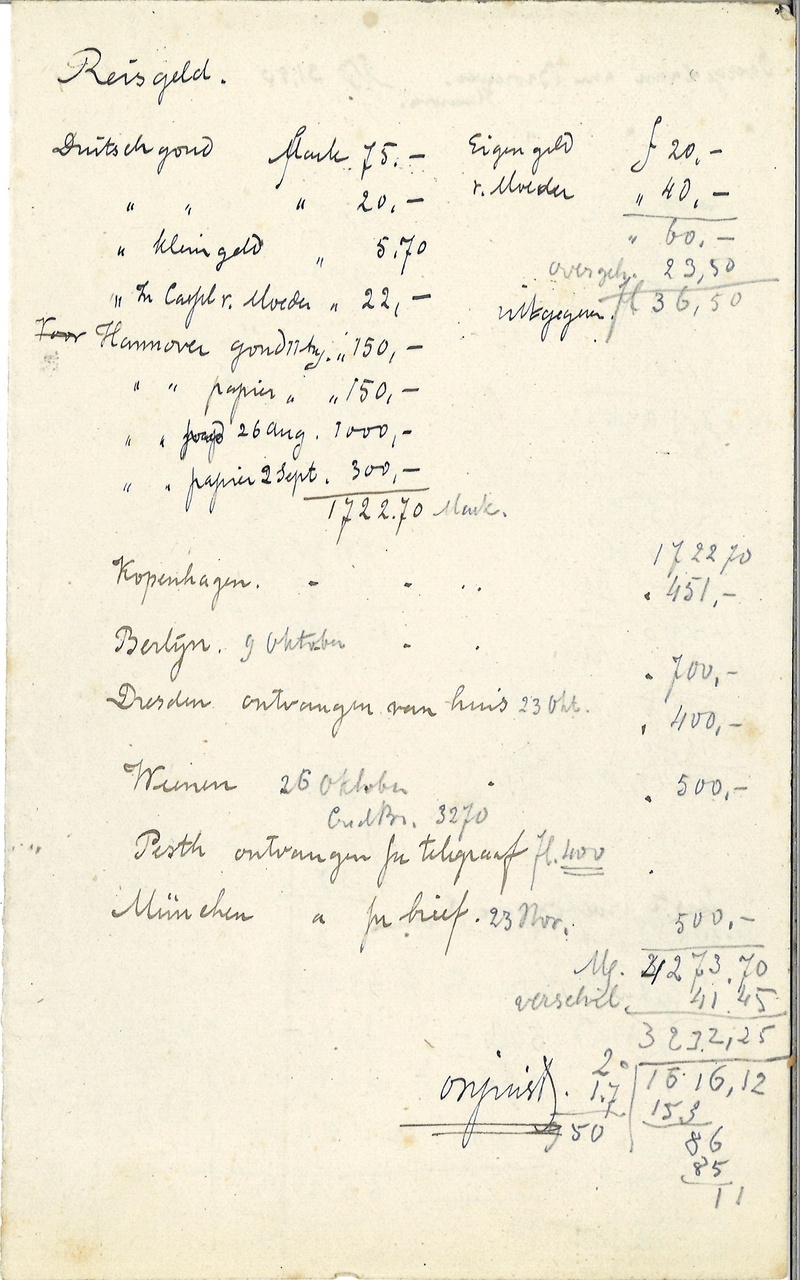 Reisgeld.
Duitsch goud Mark 75.—
" " " 20,—
" klein geld " 5.70
" In Cassel v. Moeder " 22,—
Voor Hannover goud " 150,—
" " papier " " 150,—
" " 26 Aug. 1000,—
" " papier 2 Sept. 300,—
1722.70 Mark.
Eigen geld f 20,—
v. Moeder " 40,—
" 60.—
overgeh. 23,50
uitgegeven. fl 36,50
1722 70
Kopenhagen. " 451,—
Berlijn. 9 Oktober " 700,—
Dresden ontvangen van huis 23 Okt. " 400,—
Weenen 26 Oktober " 500,—
3270
Pesth ontvangen per telegraaf fl. 400
München " per brief. 23 Nov. 500,—
M. 4273.70
verschil. 41.45
3232,25
onjuist 1616,12
1.7 153
950 86
85
11